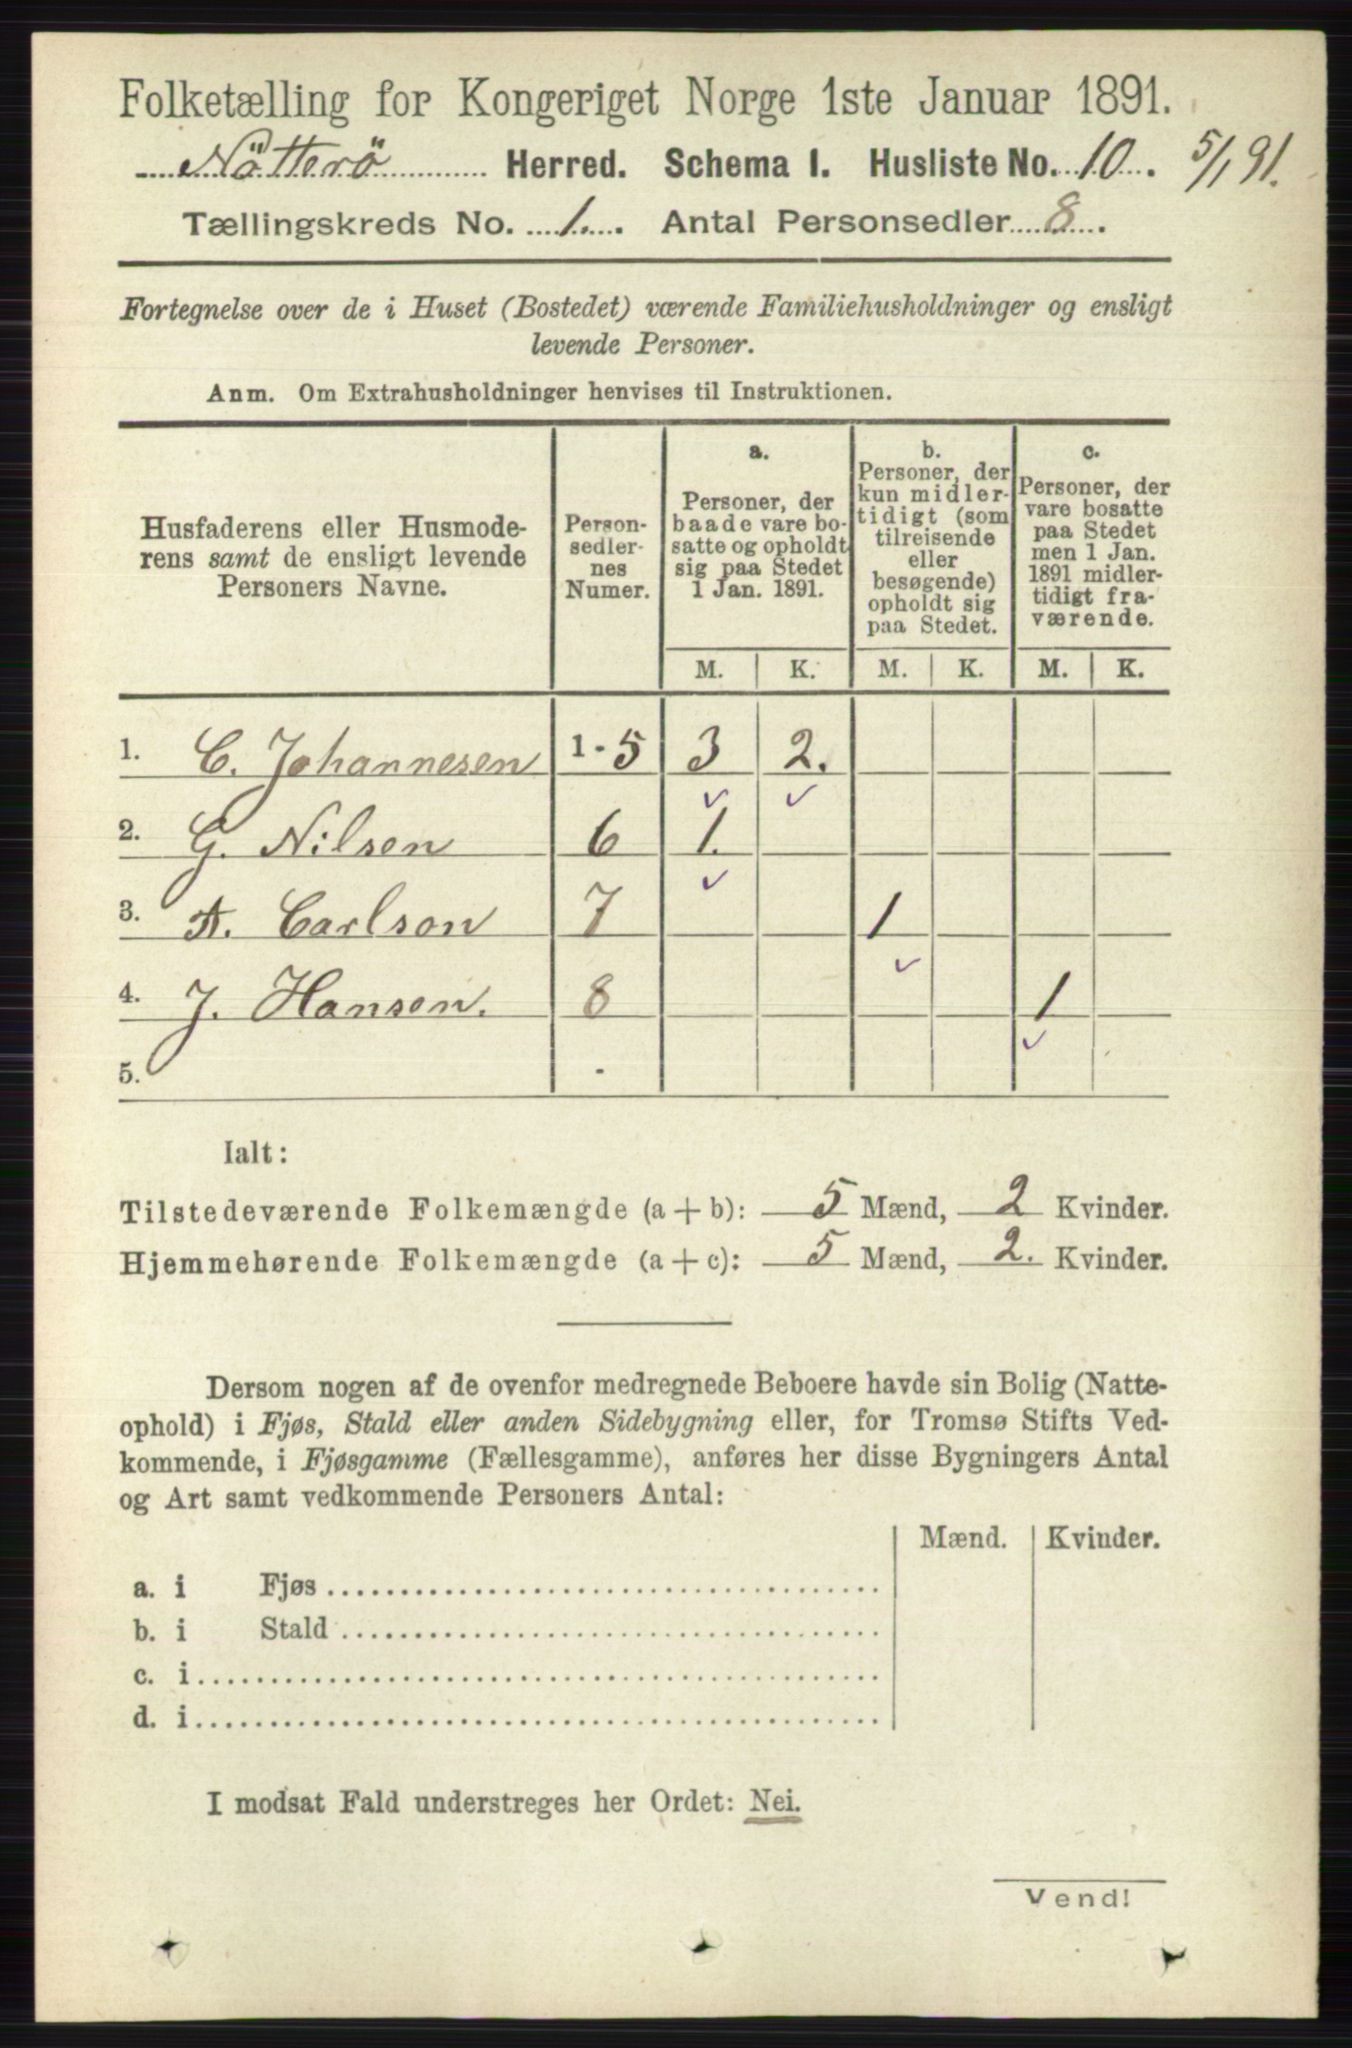 Folketælling for Kongeriget Norge 1ste Januar 1891.
Nötterö Herred. Schema I. Husliste No. 10. 5/1 91.
Tællingskreds No. 1. Antal Personsedler 8.
Fortegnelse over de i Huset (Bostedet) værende Familiehusholdninger og ensligt
levende Personer.
Anm. Om Extrahusholdninger henvises til Instruktionen.
Husfaderens eller Husmode-
rens samt de ensligt levende
Personers Navne.
Person-
sedler-
nes
Numer.
a.
Personer, der
baade vare bo-
satte og opholdt
sig paa Stedet
1 Jan. 1891.
b.
Personer, der
kun midler-
tidigt (som
tilreisende
eller
besøgende)
opholdt sig
paa Stedet.
c.
Personer, der
vare bosatte
paa Stedet
men 1 Jan.
1891 midler-
tidigt fra-
værende.
M. K. M. K. M. K.
1. C. Johannesen 1-5 3 2.
2. G. Nilsen 6 1.
3. A. Carlson 7 1
4. J. Hansen. 8 1
5.
Ialt:
Tilstedeværende Folkemængde (a + b): 5 Mænd, 2 Kvinder.
Hjemmehørende Folkemængde (a + c): 5 Mænd, 2. Kvinder.
Dersom nogen af de ovenfor medregnede Beboere havde sin Bolig (Natte-
ophold) i Fjøs, Stald eller anden Sidebygning eller, for Tromsø Stifts Ved-
kommende, i Fjøsgamme (Fællesgamme), anføres her disse Bygningers Antal
og Art samt vedkommende Personers Antal:
Mænd. Kvinder.
a. i Fjøs
b. i Stald
c. i
d. i
I modsat Fald understreges her Ordet: Nei.
Vend!